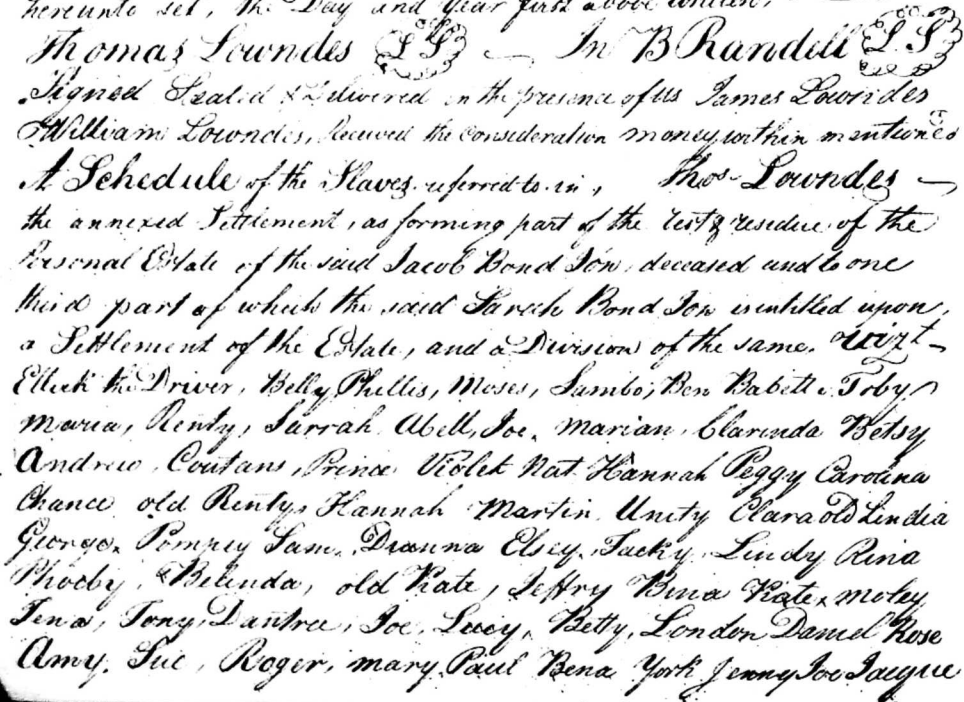 hereunto set, the Day and Year first above written,
Thomas Lowndes LS — Jn B Randell LS
Signed Sealed & Delivered in the presence of us James Lowndes
William Lowndes, Received the Consideration money within mentioned
A Schedule of the Slaves referred to in, Thos Lowndes —
the annexed Settlement, as forming part of the rest & residue of the
Personal Estate of the said Jacob Bond Ion, deceased and to one
third part of which the said Sarah Bond Ion is entitled upon,
a Settlement of the Estate, and a Division of the same, vizt —
Elleck the Driver, Betty Phillis, Moses, Sambo, Ben Babett Toby
Maria, Renty, Sarrah Abell, Joe, Marian, Clarinda Betsy
Andrew, Coutans, Prince Violet Nat Hannah Peggy Carolina
Chance old Renty, Hannah Martin, Unity Clara old Lindia
George, Pompey Sam, Dianna Elsey, Jacky, Lindy Rina
Phoeby, Belinda, old Kate, Jeffry Bina Kate, Moley
Tena, Tony, Dantree, Joe, Lucy, Betty, London Daniel Rose
Amy, Sue, Roger, Mary Paul Bena York Jenny Joe Jacque